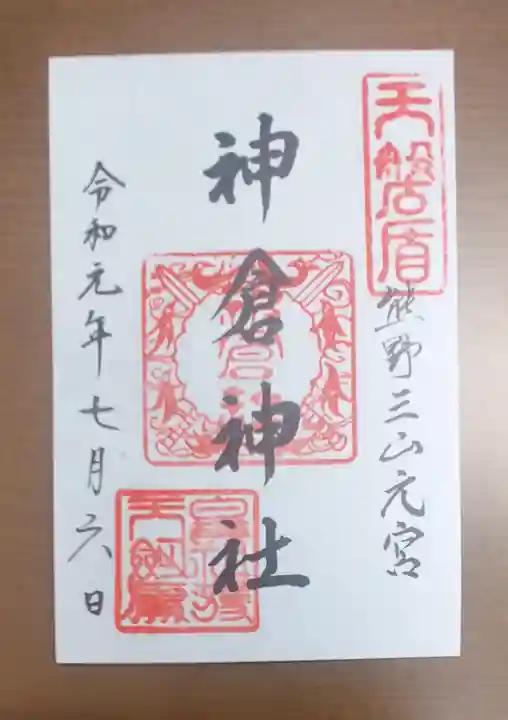 天磐盾
熊野三山元宮
神倉神社
令和元年七月六日